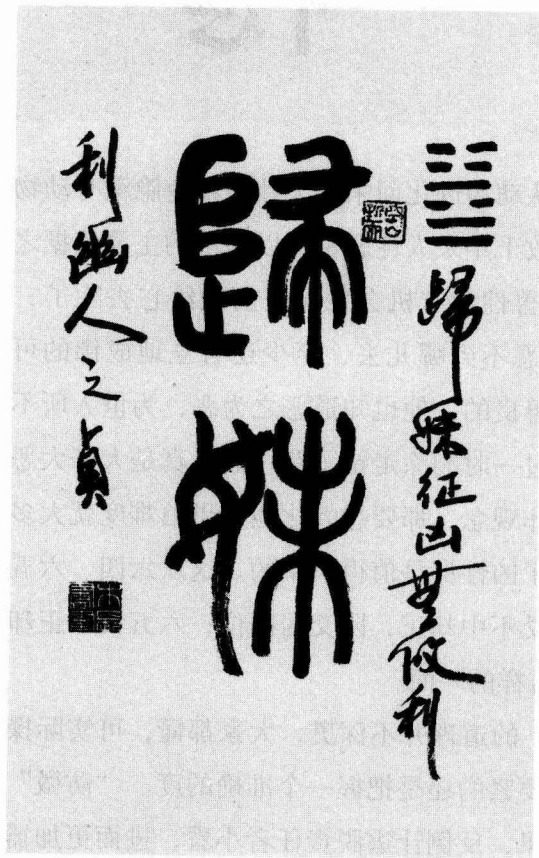 歸妹征凶無攸利
歸妹
利幽人之貞